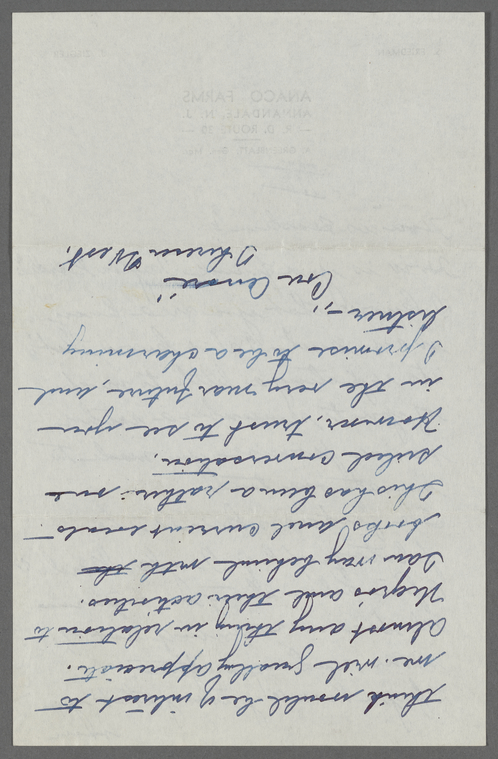 think would be of interest to
me. will greatly appreciate
almost any thing in relation to
Negros and their activities.
I am way behind with the
books, and current events.
This has been a rather one
sided conversation.
However, trust to see you
in the very near future, and
I promise to be a charming
listner –;
Con Amore
West.
ANACO FARMS
ANNANDALE, N. J.
R. D. ROUTE 28